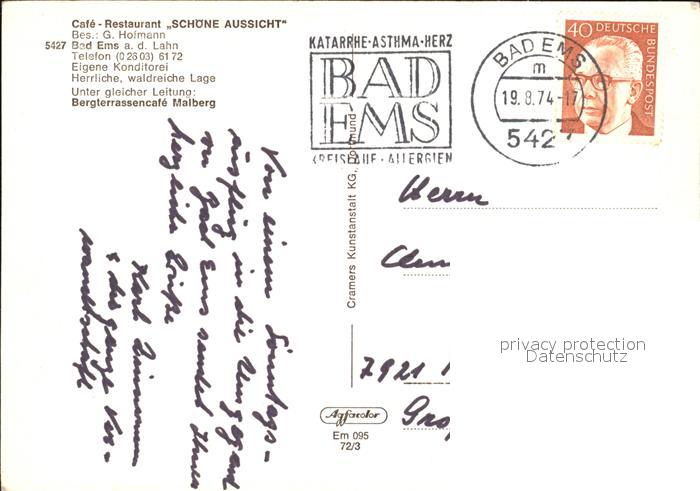 Café - Restaurant „SCHÖNE AUSSICHT"
Bes.: G. Hofmann
5427 Bad Ems a. d. Lahn
Telefon (0 26 03) 61 72
Eigene Konditorei
Herrliche, waldreiche Lage
Unter gleicher Leitung:
Bergterrassencafé Malberg
KATARRHE·ASTHMA·HERZ
BAD
EMS
KREISLAUF·ALLERGIEN
BAD EMS
m
19.8.74-17
5427
40 DEUTSCHE
BUNDESPOST
Von einem Sonntags-
ausflug in die Umgegend
von Bad Ems sendet Ihnen
herzliche Grüße
Karl
+ die ganze Ver-
wandtschaft
Cramers Kunstanstalt KG, Dortmund
Herrn
7921
Agfacolor
Em 095
72/3
privacy protection
Datenschutz